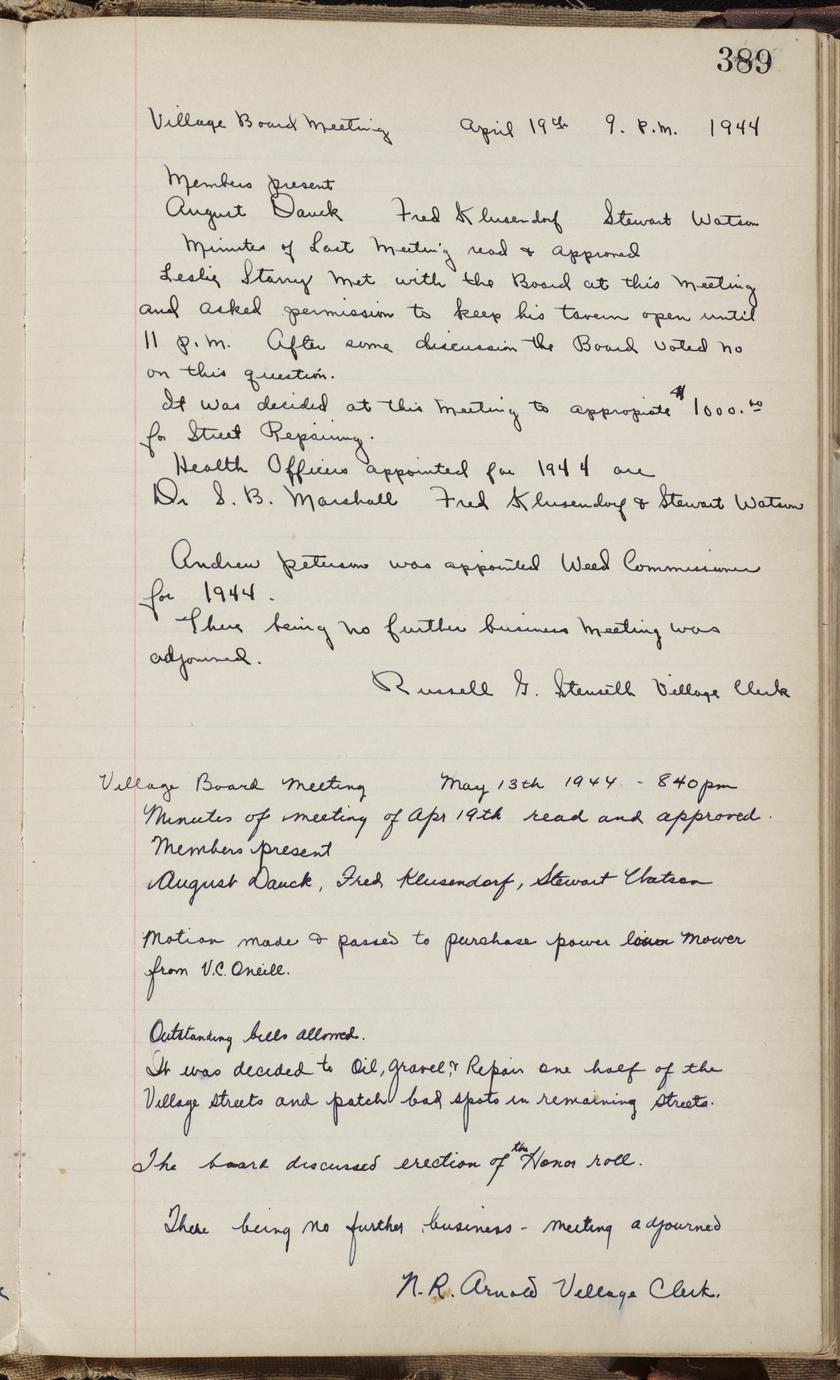 389
Village Board Meeting April 19th 9. P.M. 1944
Members present
August Dauck Fred Klusendorf Stewart Watson
Minutes of Last Meeting read & approved
Leslie Starry met with the Board at this Meeting
and asked permission to keep his tavern open until
11 P.M. After some discussion the Board voted no
on this question.
It was decided at this Meeting to appropiate $1000.00
for Street Repairing.
Health Officers appointed for 1944 are
Dr S. B. Marshall Fred Klusendorf & Stewart Watson
Andrew Peterson was appointed Weed Commissioner
for 1944.
There being no further business Meeting was
adjourned.
Russell G. Stenseth Village Clerk
Village Board Meeting May 13th 1944 - 840pm
Minutes of meeting of Apr 19th read and approved.
Members present
August Dauck, Fred Klusendorf, Stewart Watson
Motion made & passed to purchase power lawn Mower
from V.C. Oneill.
Outstanding bills allowed.
It was decided to Oil, gravel, & Repair one half of the
Village streets and patch bad spots in remaining streets.
The board discussed erection of the Honor roll.
There being no further business - meeting adjourned
N.R. Arnold Village Clerk.